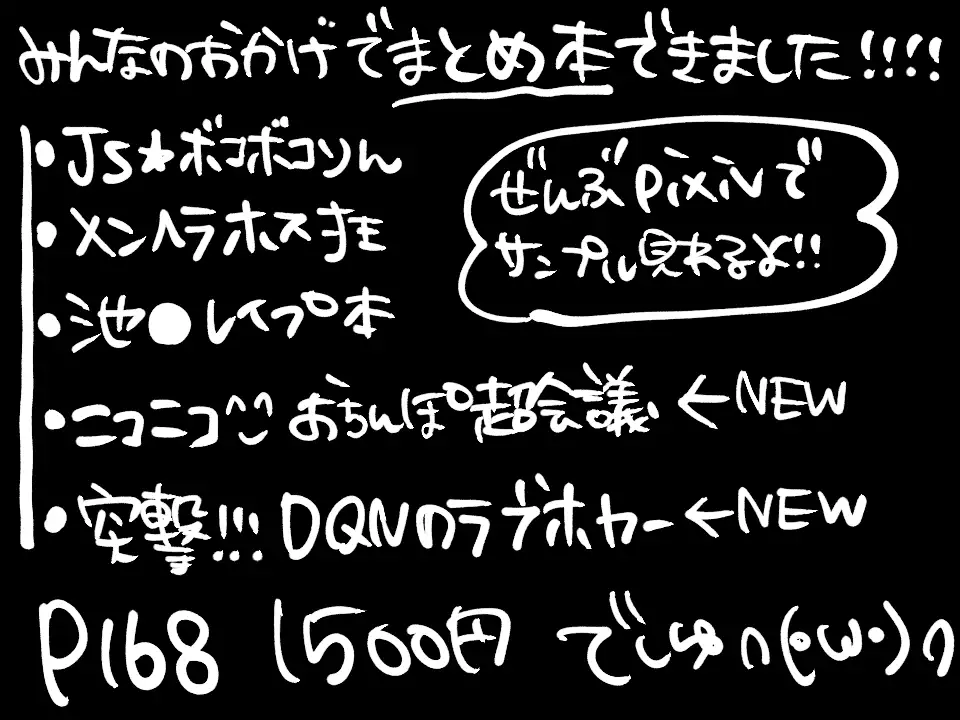 みんなのおかげでまとめ本できました!!!!
・JS★ボコボコりん
ぜんぶpixivで
サンプル見れるよ!!
・メンヘラホス狂
・池●レイプ本
・ニコニコ^^ おちんぽ超会議 ←NEW
・突撃!!! DQNのラブホカー ←NEW
P168 1500円 でしゅ∩(・ω・)∩